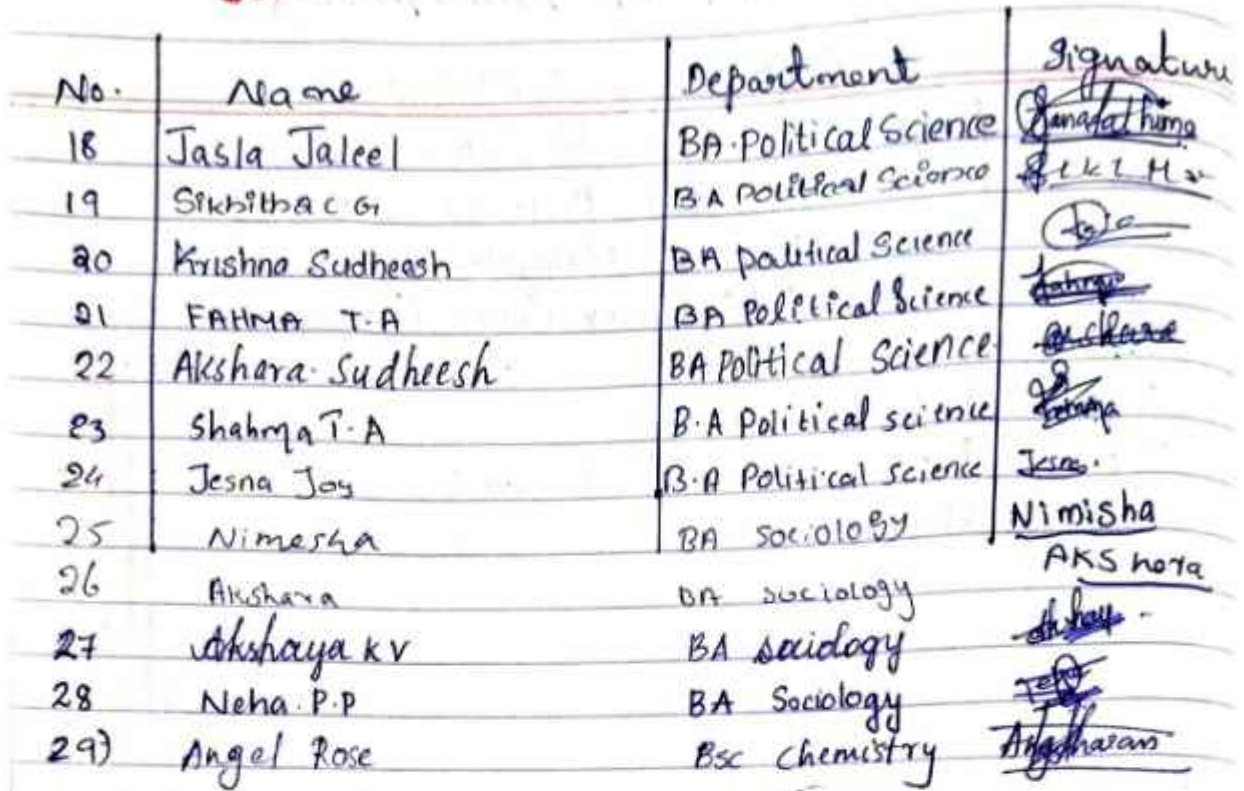 No. Name Department Signature
18 Jasla Jaleel BA.Political Science
19 Sikhitha C G BA Political Science
20 Krishna Sudheesh BA Political Science
21 FAHMA T.A BA Political Science
22 Akshara Sudheesh BA Political Science
23 Shahma T.A B.A Political science
24 Jesna Joy B.A Political Science Jesna.
25 Nimesha BA Sociology Nimisha
26 Akshara BA Sociology AKShara
27 Akshaya KV BA Sociology
28 Neha.P.P BA Sociology
29) Angel Rose Bsc Chemistry